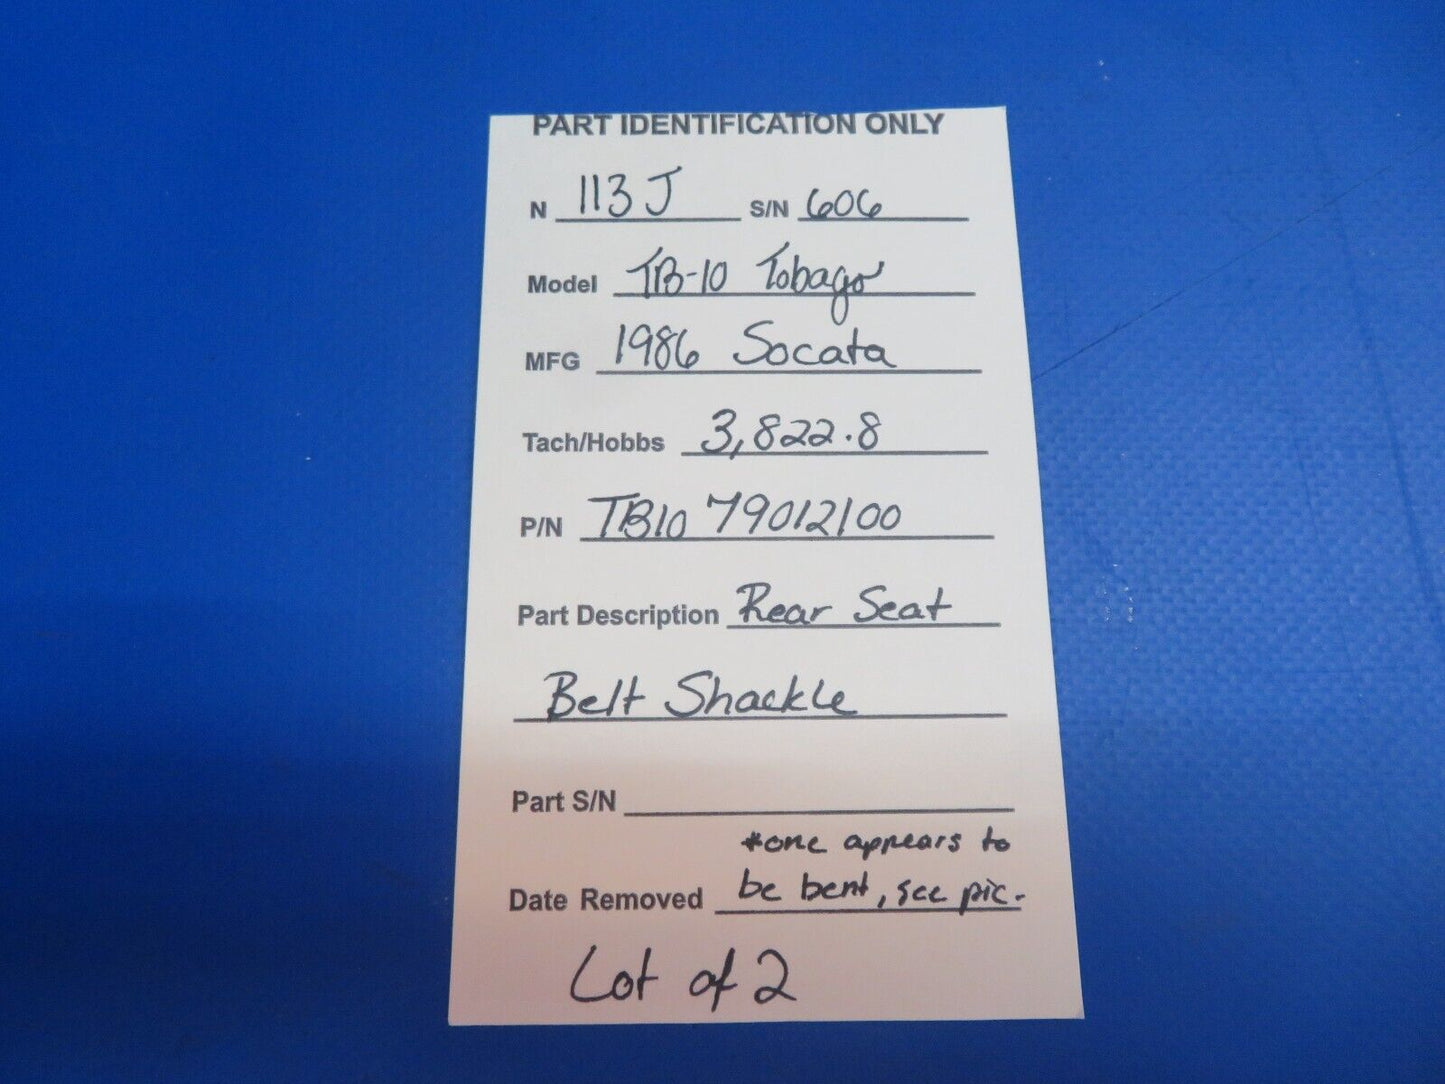 PART IDENTIFICATION ONLY
N 113J S/N 606
Model TB-10 Tobago
MFG 1986 Socata
Tach/Hobbs 3,822.8
P/N TB10 79012100
Part Description Rear Seat
Belt Shackle
Part S/N
*one appears to
Date Removed be bent, see pic.
Lot of 2